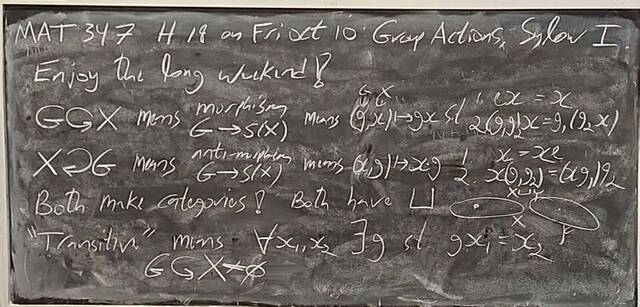 MAT 347 H 19 on Fri Oct 10: Group Actions, Sylow I
Enjoy the long weekend!
G↻X means morphism G→S(X) means (g,x)↦gx st. 1. ex=x 2. (g₁g₂)x=g₁(g₂x)
X↺G means anti-morphism G→S(X) means (x,g)↦xg 1. x=xe 2. x(g₁g₂)=(xg₁)g₂
Both make categories! Both have ⊔ X⊔Y X Y
"Transitive" means ∀x₁,x₂ ∃g st. gx₁=x₂
G↻X≠∅